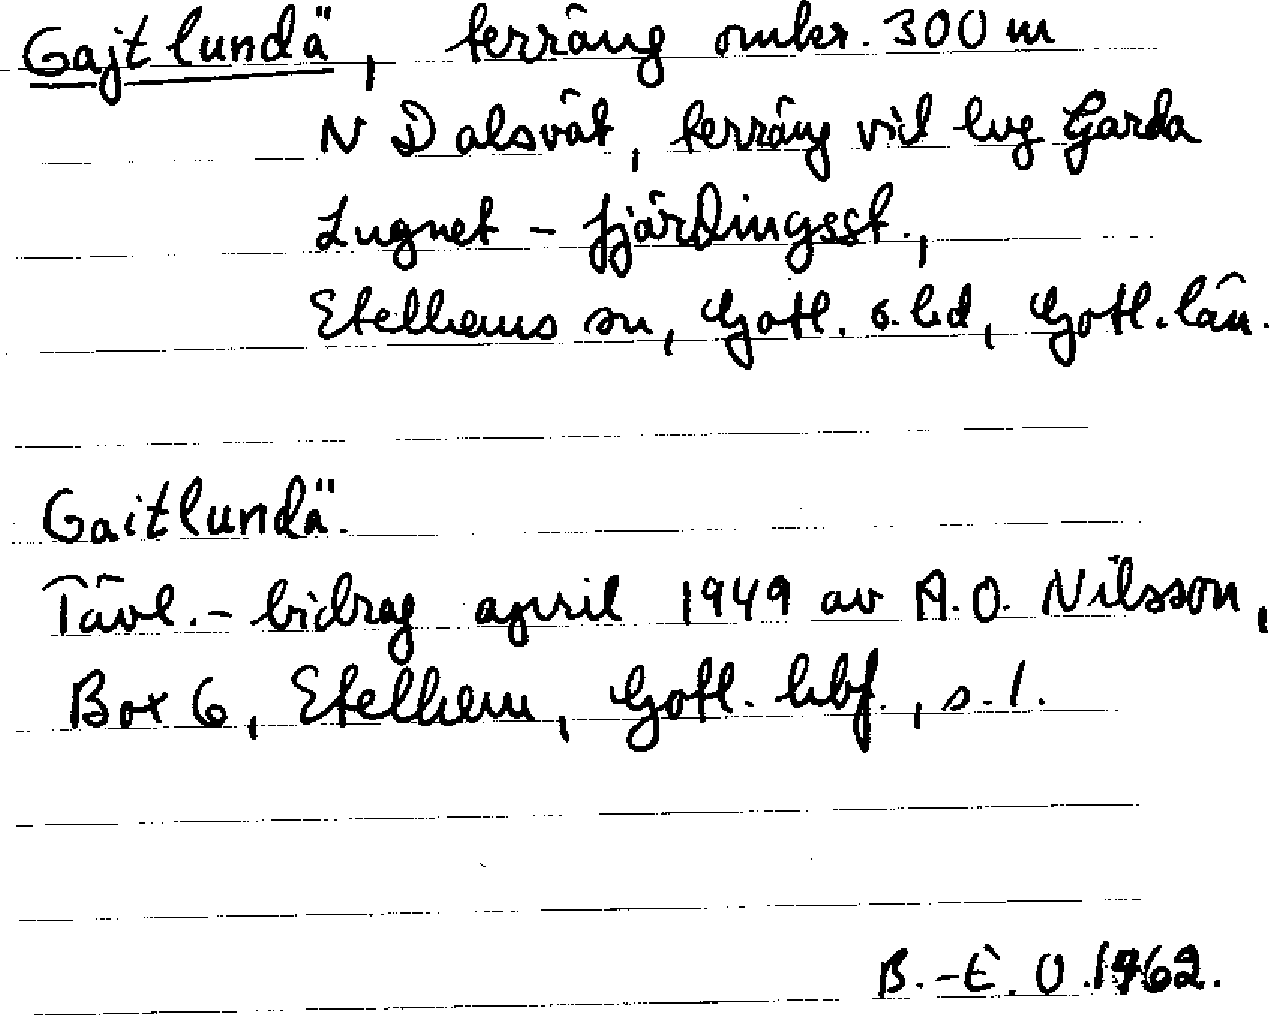 Gajtlundä, terräng omkr. 300 m
N Dalsvät, terräng vid lvg Garda
Lugnet - fjärdingsst.,
Etelhems sn, Gotl. s. hd, Gotl. län.
Gaitlundä.
Tävl.- bidrag april 1949 av A.O. Nilsson,
Box 6, Etelhem, Gotl. hbf., s. 1.
B.-E. O. 1962.